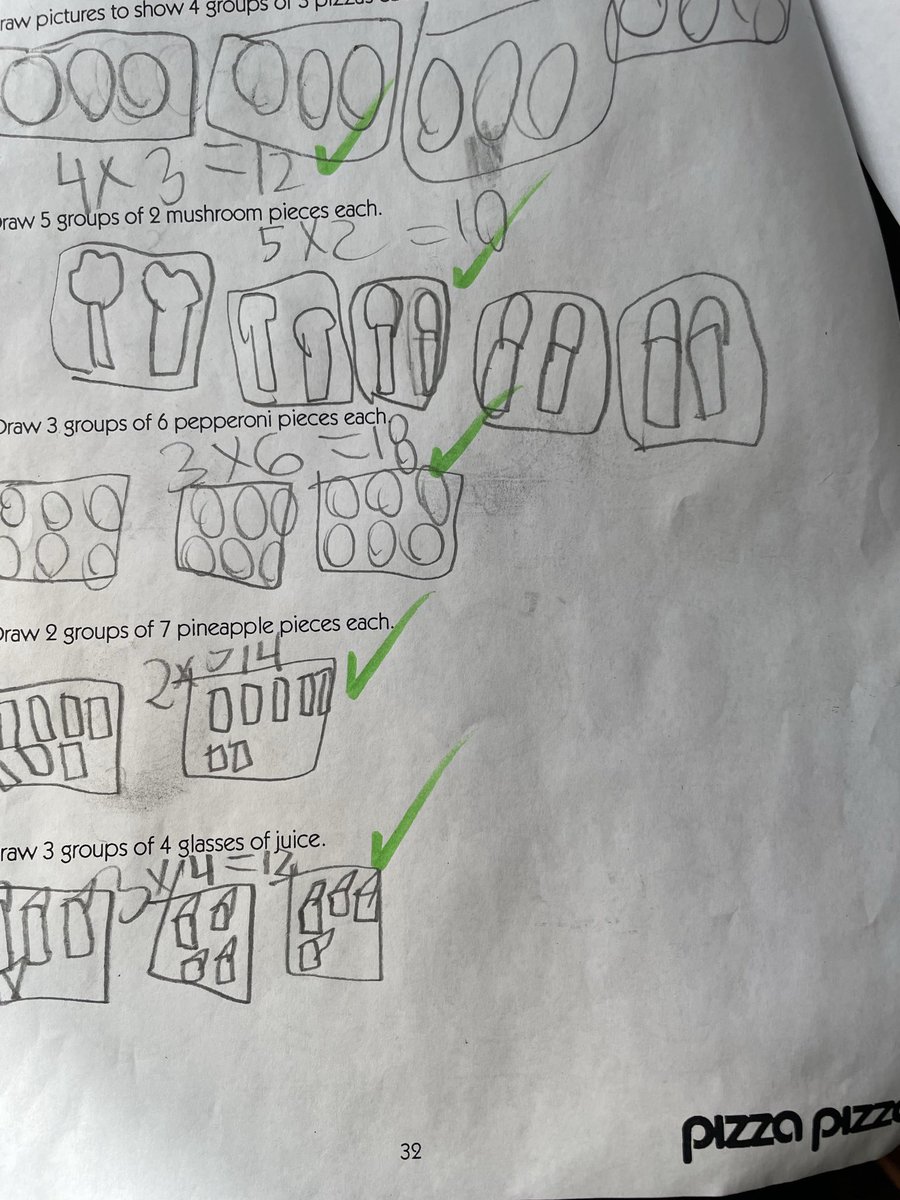 raw pictures to show 4 groups of 3 pizzas
4 x 3 = 12
raw 5 groups of 2 mushroom pieces each.
5 x 2 = 10
Draw 3 groups of 6 pepperoni pieces each.
3 x 6 = 18
Draw 2 groups of 7 pineapple pieces each.
2x = 14
raw 3 groups of 4 glasses of juice.
3 x 4 = 12
32
pizza pizza